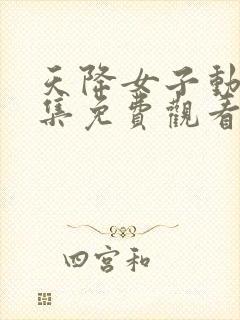 天降女子動
集免費觀看
四宮和